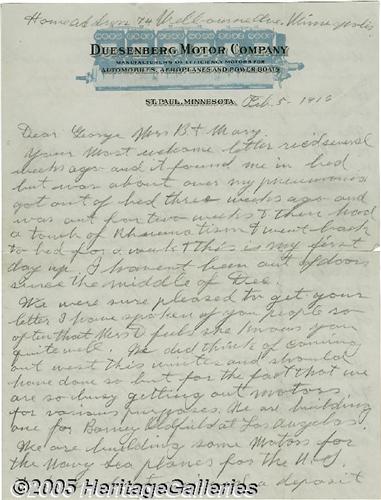 Home address 44 Melbourne Ave, Minneapolis
DUESENBERG MOTOR COMPANY
MANUFACTURERS OF EFFICIENCY MOTORS FOR
AUTOMOBILES, AEROPLANES AND POWER BOATS
ST. PAUL, MINNESOTA Feb. 5 - 1916
Dear George Mrs B & Mary.
Your most welcome letter rec'd several
weeks ago and it found me in bed
but was about over my pneumonia
got out of bed three weeks ago and
was out for two weeks & then had
a touch of Rheumatism & went back
to bed for a week & this is my first
day up. I haven't been out of doors
since the middle of Dec.
We were sure pleased to get your
letter I have spoken of you people so
often that Mrs D feels she knows you
quite well. We did think of coming
out west this winter and should
have done so but for the fact that we
are so busy getting out motors
for various purposes. We are building
one for Barney Oldfield at Los Angeles.
We are building some Motors for
the Navy Sea planes for the U.S.
a deposit
©2005 HeritageGalleries